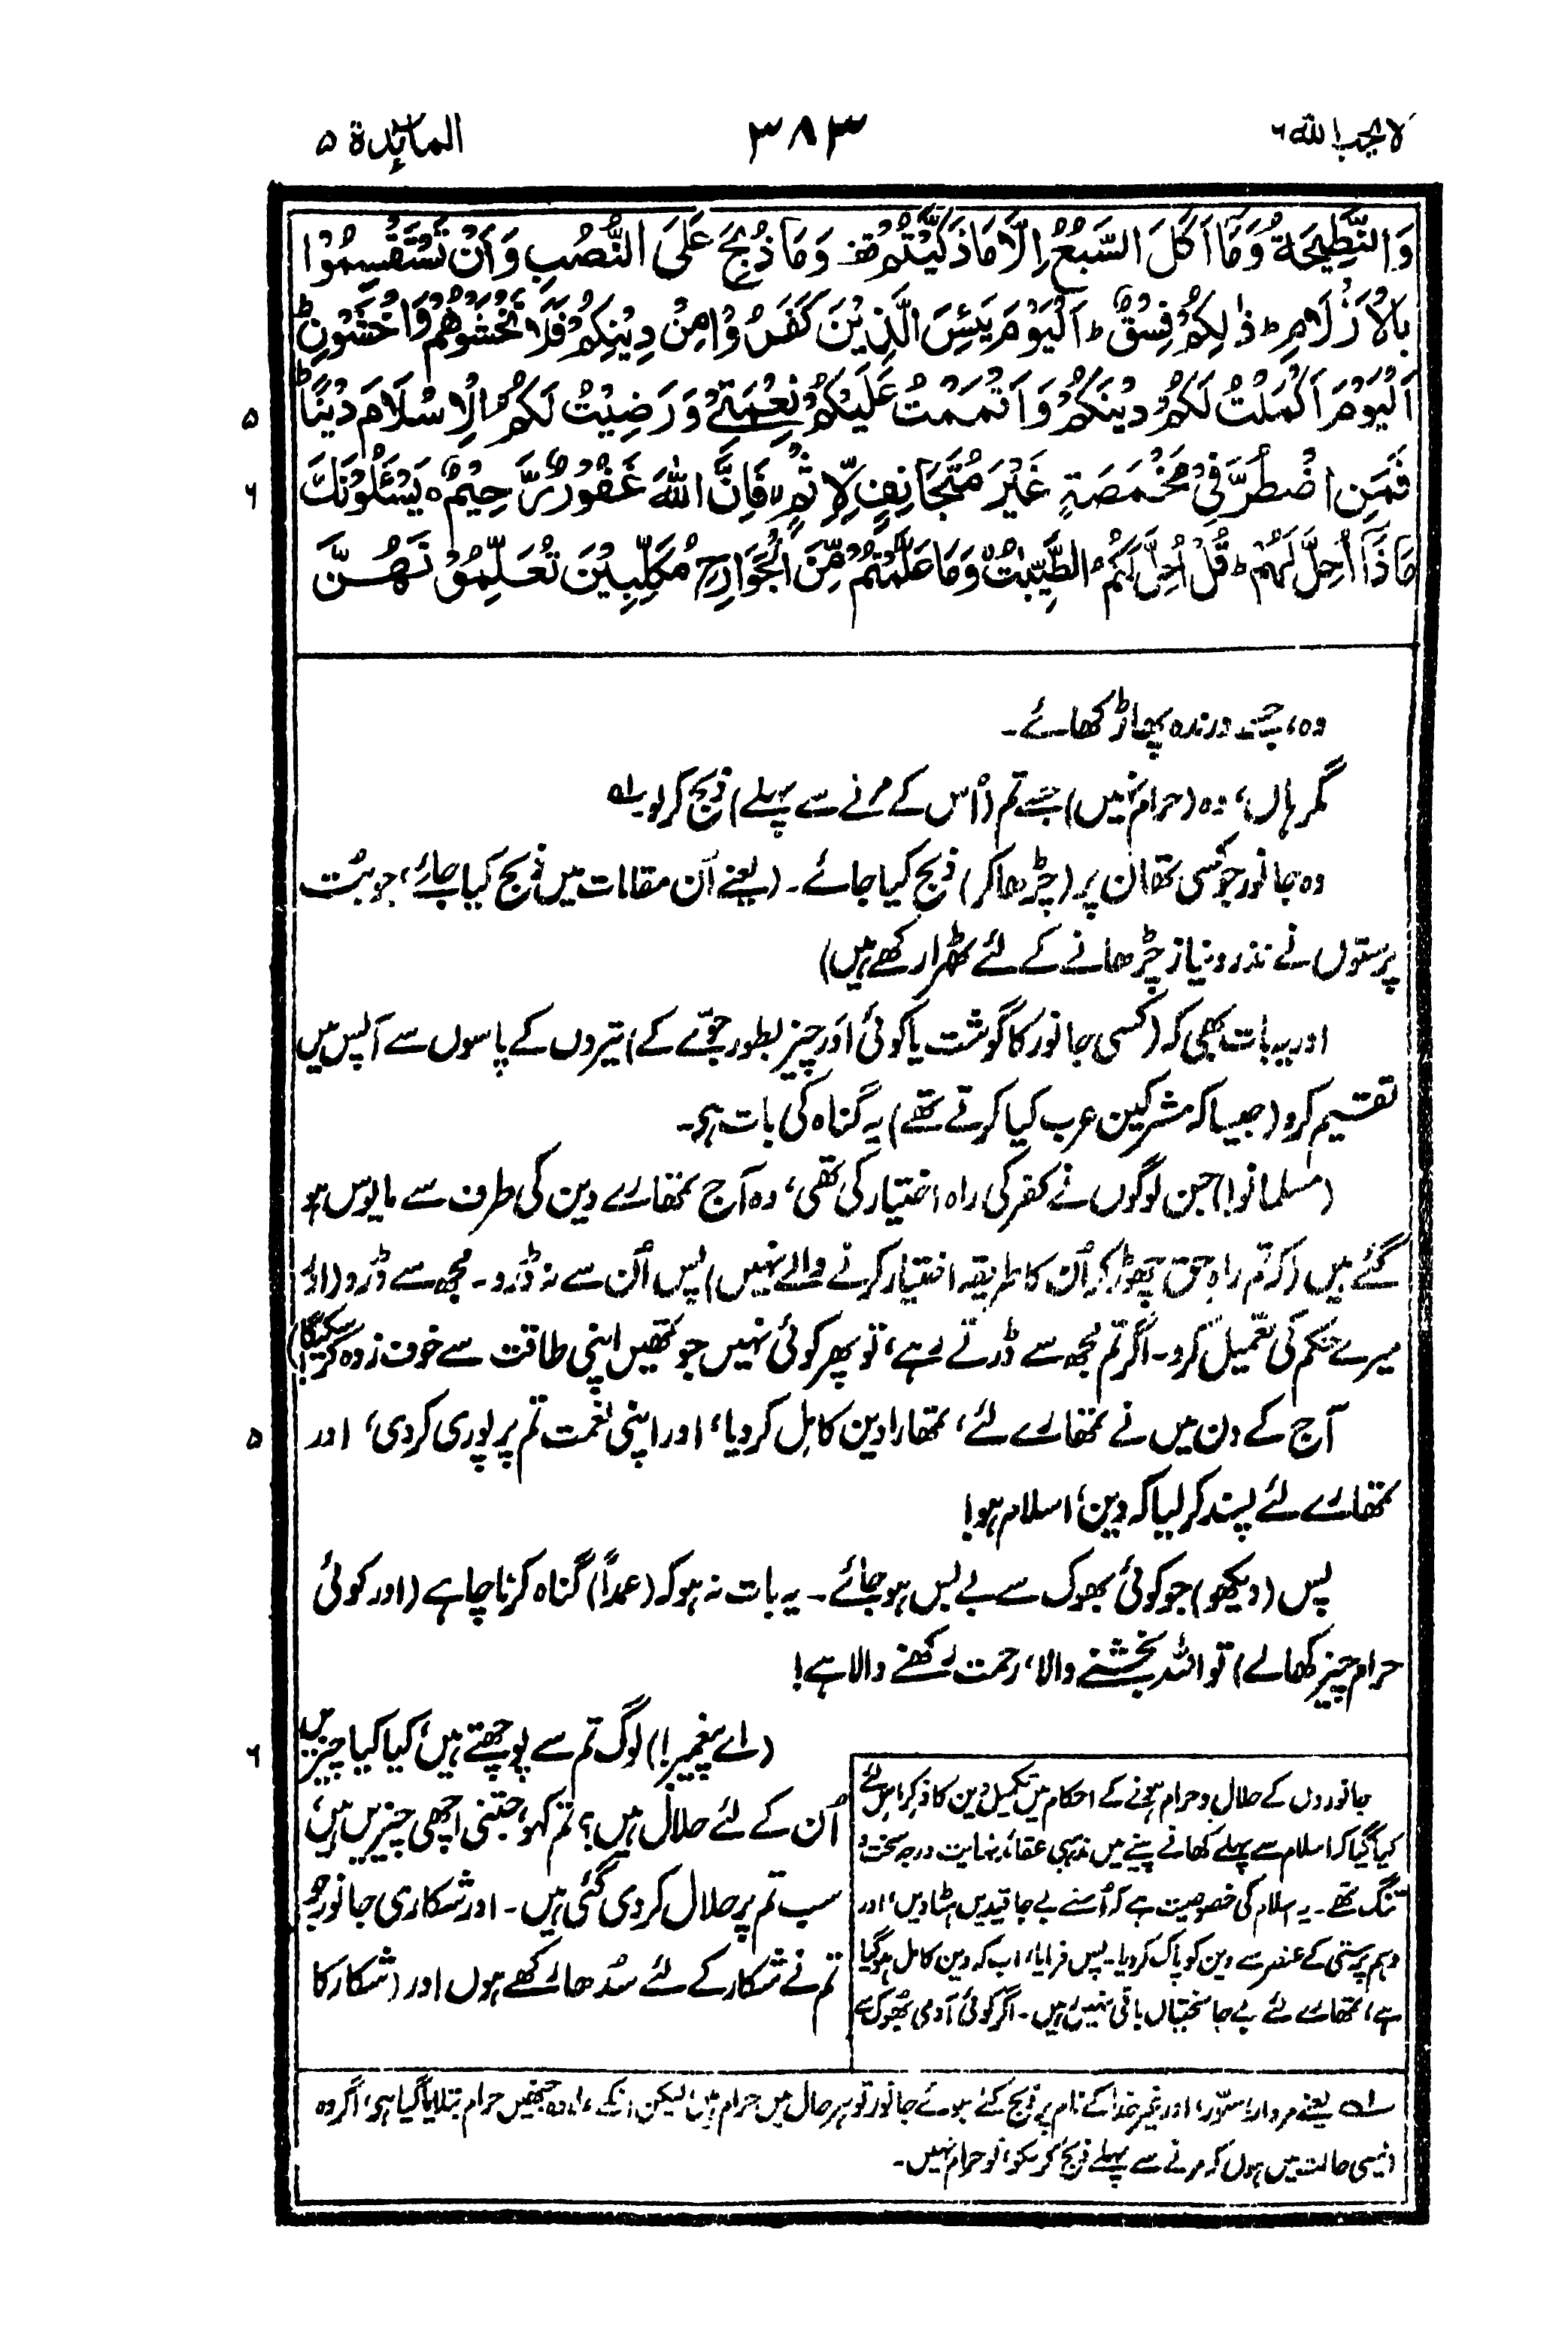 لا یحب اللہ ۶
۳۸۳
المائدة ۵
وَالنَّطِيْحَةُ وَمَآ اَكَلَ السَّبُعُ اِلَّا مَا ذَكَّيْتُمْ قف وَمَا ذُبِحَ عَلَى النُّصُبِ وَاَنْ تَسْتَقْسِمُوْا
بِالْاَزْلَامِ ؕ ذٰلِكُمْ فِسْقٌ ؕ اَلْيَوْمَ يَئِسَ الَّذِيْنَ كَفَرُوْا مِنْ دِيْنِكُمْ فَلَا تَخْشَوْهُمْ وَاخْشَوْنِ ؕ
اَلْيَوْمَ اَكْمَلْتُ لَكُمْ دِيْنَكُمْ وَاَتْمَمْتُ عَلَيْكُمْ نِعْمَتِيْ وَرَضِيْتُ لَكُمُ الْاِسْلَامَ دِيْنًا ؕ
۵
فَمَنِ اضْطُرَّ فِيْ مَخْمَصَةٍ غَيْرَ مُتَجَانِفٍ لِّاِثْمٍ ۙ فَاِنَّ اللهَ غَفُوْرٌ رَّحِيْمٌ ۝ يَسْـَٔلُوْنَكَ
۶
مَاذَآ اُحِلَّ لَهُمْ ؕ قُلْ اُحِلَّ لَكُمُ الطَّيِّبٰتُ ۙ وَمَا عَلَّمْتُمْ مِّنَ الْجَوَارِحِ مُكَلِّبِيْنَ تُعَلِّمُوْنَهُنَّ
وہ، جسے درندہ پھاڑ کھائے۔
مگر ہاں، وہ (حرام نہیں) جسے تم (اُس کے مرنے سے پہلے) ذبح کر لو۔ لہ
وہ جانور جو کسی تھان پر (چڑھا کر) ذبح کیا جائے۔ (یعنے اُن مقامات میں ذبح کیا جائے، جو بُت
پرستوں نے نذر و نیاز چڑھانے کے لئے ٹھہرا رکھے ہیں)
اور یہ بات بھی کہ (کسی جانور کا گوشت یا کوئی اَور چیز بطور جوّے کے) تیروں کے پاسوں سے آپس میں
تقسیم کرو (جیسا کہ مشرکین عرب کیا کرتے تھے) یہ گناہ کی بات ہی۔
(مسلمانو!) جن لوگوں نے کفر کی راہ اختیار کی تھی، وہ آج تمھارے دین کی طرف سے مایوس ہو
گئے ہیں (کہ تم راہِ حق چھوڑ کر اُن کا طریقہ اختیار کرنے والے نہیں) پس اُن سے نہ ڈرو۔ مجھ سے ڈرو (اور
میرے حکم کی تعمیل کرو۔ اگر تم مجھ سے ڈرتے رہے، تو پھر کوئی نہیں جو تمھیں اپنی طاقت سے خوف زدہ کر سکیگا!)
آج کے دن میں نے تمھارے لئے، تمھارا دین کامل کر دیا، اور اپنی نعمت تم پر پوری کر دی، اور
۵
تمھارے لئے پسند کر لیا کہ دین، اسلام ہو!
پس (دیکھو) جو کوئی بھوک سے بے بس ہو جائے۔ یہ بات نہ ہو کہ (عمداً) گناہ کرنا چاہے (اور کوئی
حرام چیز کھا لے) تو اللہ بخشنے والا، رحمت رکھنے والا ہے!
(اے پیغمبر!) لوگ تم سے پوچھتے ہیں، کیا کیا چیزیں
۶
اُن کے لئے حلال ہیں؟ تم کہو، جتنی اچھی چیزیں ہیں،
سب تم پر حلال کر دی گئی ہیں۔ اور شکاری جانور جو
تم نے شکار کے لئے سُدھا رکھے ہوں اور (شکار کا
جانوروں کے حلال و حرام ہونے کے احکام میں تکمیل دین کا ذکر اس لئے
کیا گیا کہ اسلام سے پہلے کھانے پینے میں مذہبی عقائد نہایت درجہ سخت و
تنگ تھے۔ یہ اسلام کی خصوصیت ہے کہ اُسنے بے جا قیدیں ہٹا دیں، اور
وہم پرستی کے عنصر سے دین کو پاک کر دیا۔ پس فرمایا، اب کہ دین کامل ہو گیا
ہے، تمھارے لئے بے جا سختیاں باقی نہیں رہیں۔ اگر کوئی آدمی بھوک سے
لہ یعنے مردار، سوّر، اور غیر خدا کے نام پر ذبح کئے ہوئے جانور تو ہر حال میں حرام ہیں، لیکن انکے علاوہ جنھیں حرام بتلایا گیا ہی، اگر وہ
ایسی حالت میں ہوں کہ مرنے سے پہلے ذبح کر سکو، تو حرام نہیں۔